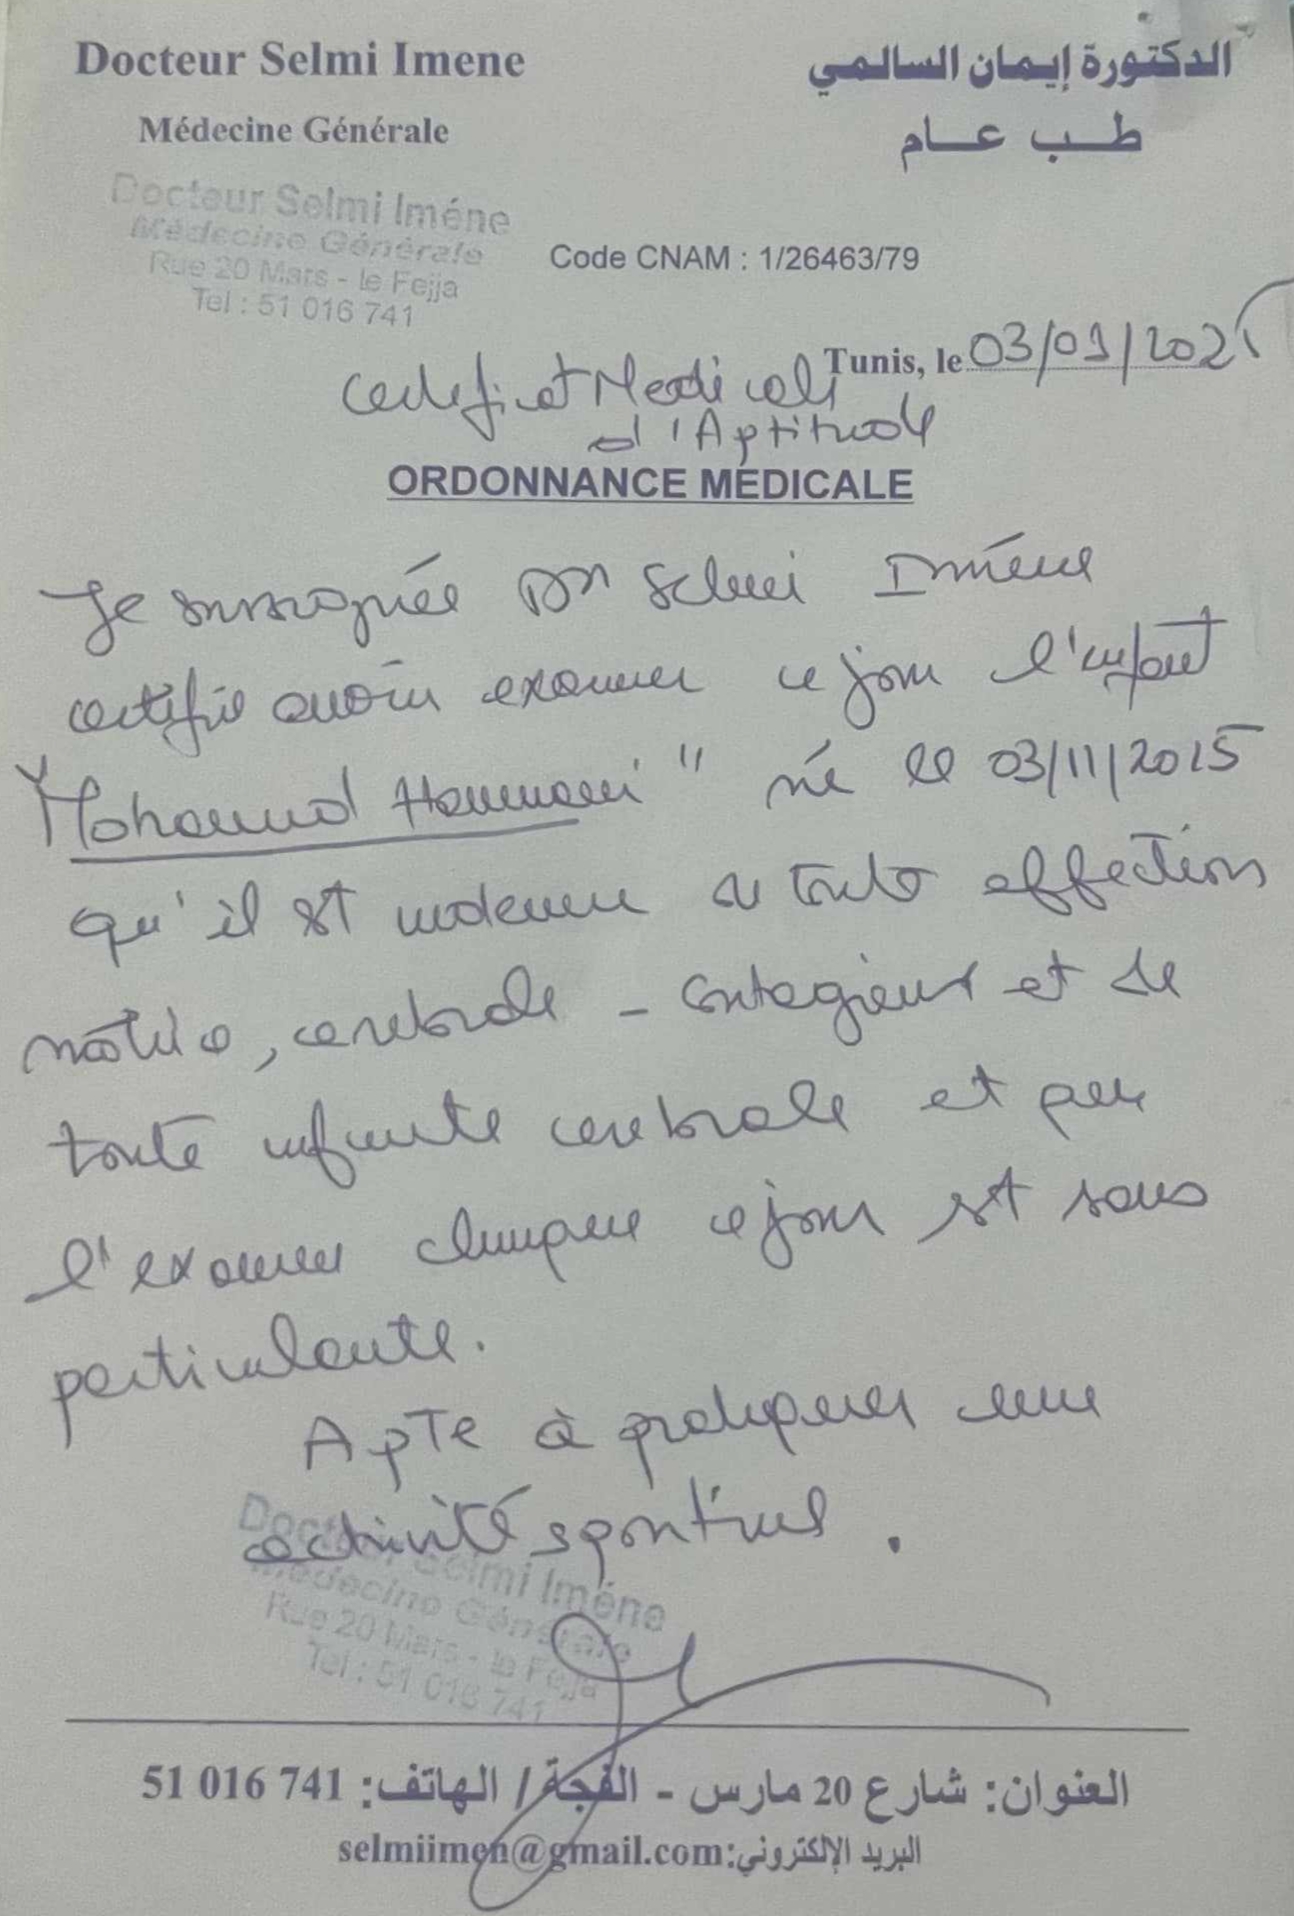 Docteur Selmi Imene
الدكتورة إيمان السالمي
Médecine Générale
طب عام
Docteur Selmi Iméne
Médecine Générale
Rue 20 Mars - le Fejja
Tel : 51 016 741
Code CNAM : 1/26463/79
Tunis, le 03/01/202
Certificat Medical
d'Aptitude
ORDONNANCE MÉDICALE
Je soussignée Dr Selmi Imène
certifie avoir examiner ce jour l'enfant
"Mohamed Hammami" né le 03/11/2015
qu'il est indemne de toute affection
cerebrale - contagieux et de
toute cerebrale et par
l'examen clinique ce jour est sans
particularité.
Apte à pratiquer une
activité sportive.
Docteur Selmi Iméne
Médecine Générale
Rue 20 Mars - le Fejja
Tel : 51 016 741
العنوان: شارع 20 مارس - الفجة / الهاتف: 51 016 741
البريد الإلكتروني: selmiimen@gmail.com